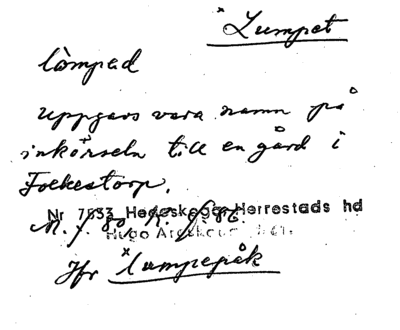 *Lumpet
lòmpad
uppgavs vara namn på
inkörseln till en gård i
Folkestorp.
Nr 7533 Hedeskoga Herrestads hd
Hugo Areskoug
Jfr *lumpepåk